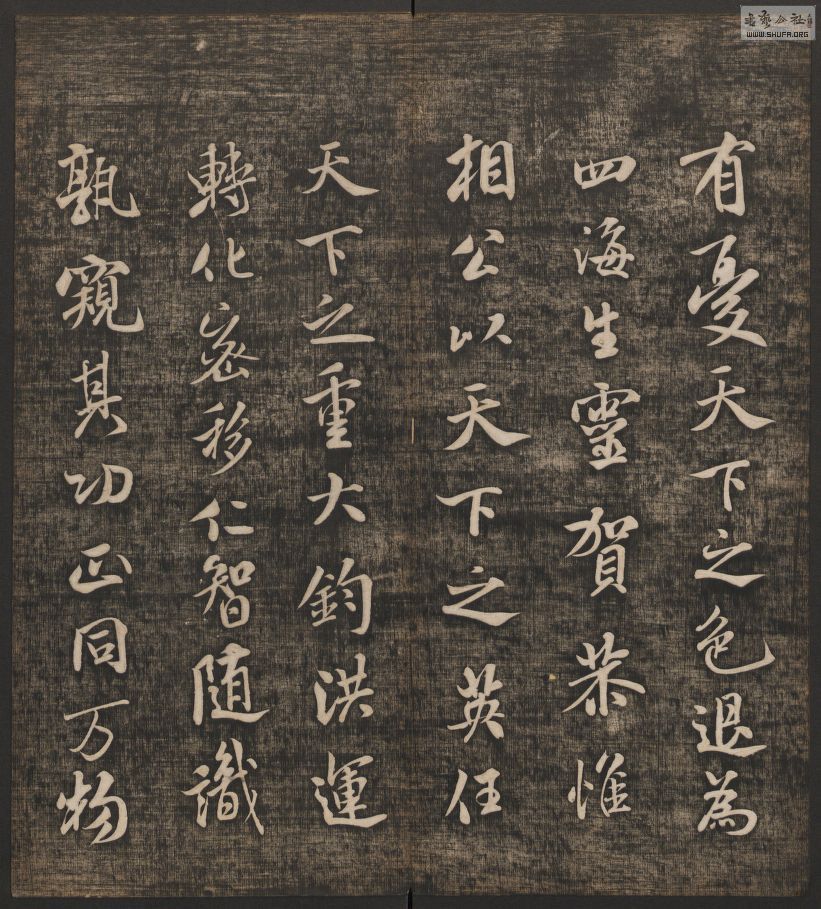 有憂天下之色退為
四海生靈賀恭惟
相公以天下之英任
天下之重大鈞洪運
轉化密移仁智随識
孰窺其功正同万物
书艺公社
WWW.SHUFA.ORG